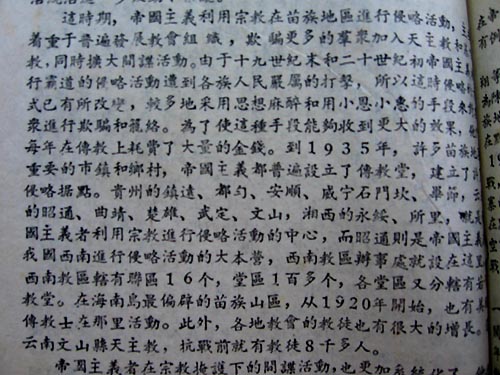 這時期，帝國主義利用宗教在苗族地區進行侵略活動，主
着重于普遍發展教會組織，欺騙更多的羣衆加入天主教和
教，同時擴大間諜活動。由于十九世紀末和二十世紀初帝國主義
行霸道的侵略活動遭到各族人民嚴属的打擊，所以這時的手段和
式已有所改變，較多地采用思想麻醉和用小恩小惠的手段來
衆進行欺騙和籠絡。為了使這種手段能夠收到更大的效果，
每年在傳教上耗費了大量的金錢。到1935年，許多苗族地
重要的市鎮和鄉村，帝國主義都普遍設立了傳教堂，建立了
侵略据點。貴州的鎮遠、都勻、安順、威宁石門坎、畢節，云
的昭通、曲靖、楚雄、武定、文山，湘西的永綏、所里，就是
國主義者利用宗教進行侵略活動的中心，而昭通則是帝國主義
我國西南進行侵略活動的大本營，西南教區辦事處就設在這里
西南教區轄有聯區16个，堂區1百多个，各堂區又分轄有
教堂。在海南島最偏辟的苗族山區，从1920年開始，也有
傳教士在那里活動。此外，各地教會的教徒也有很大的增長。
云南文山縣天主教，抗戰前就有教徒8千多人。
帝國主義者在宗教掩護下的間諜活動，也更加系統化了